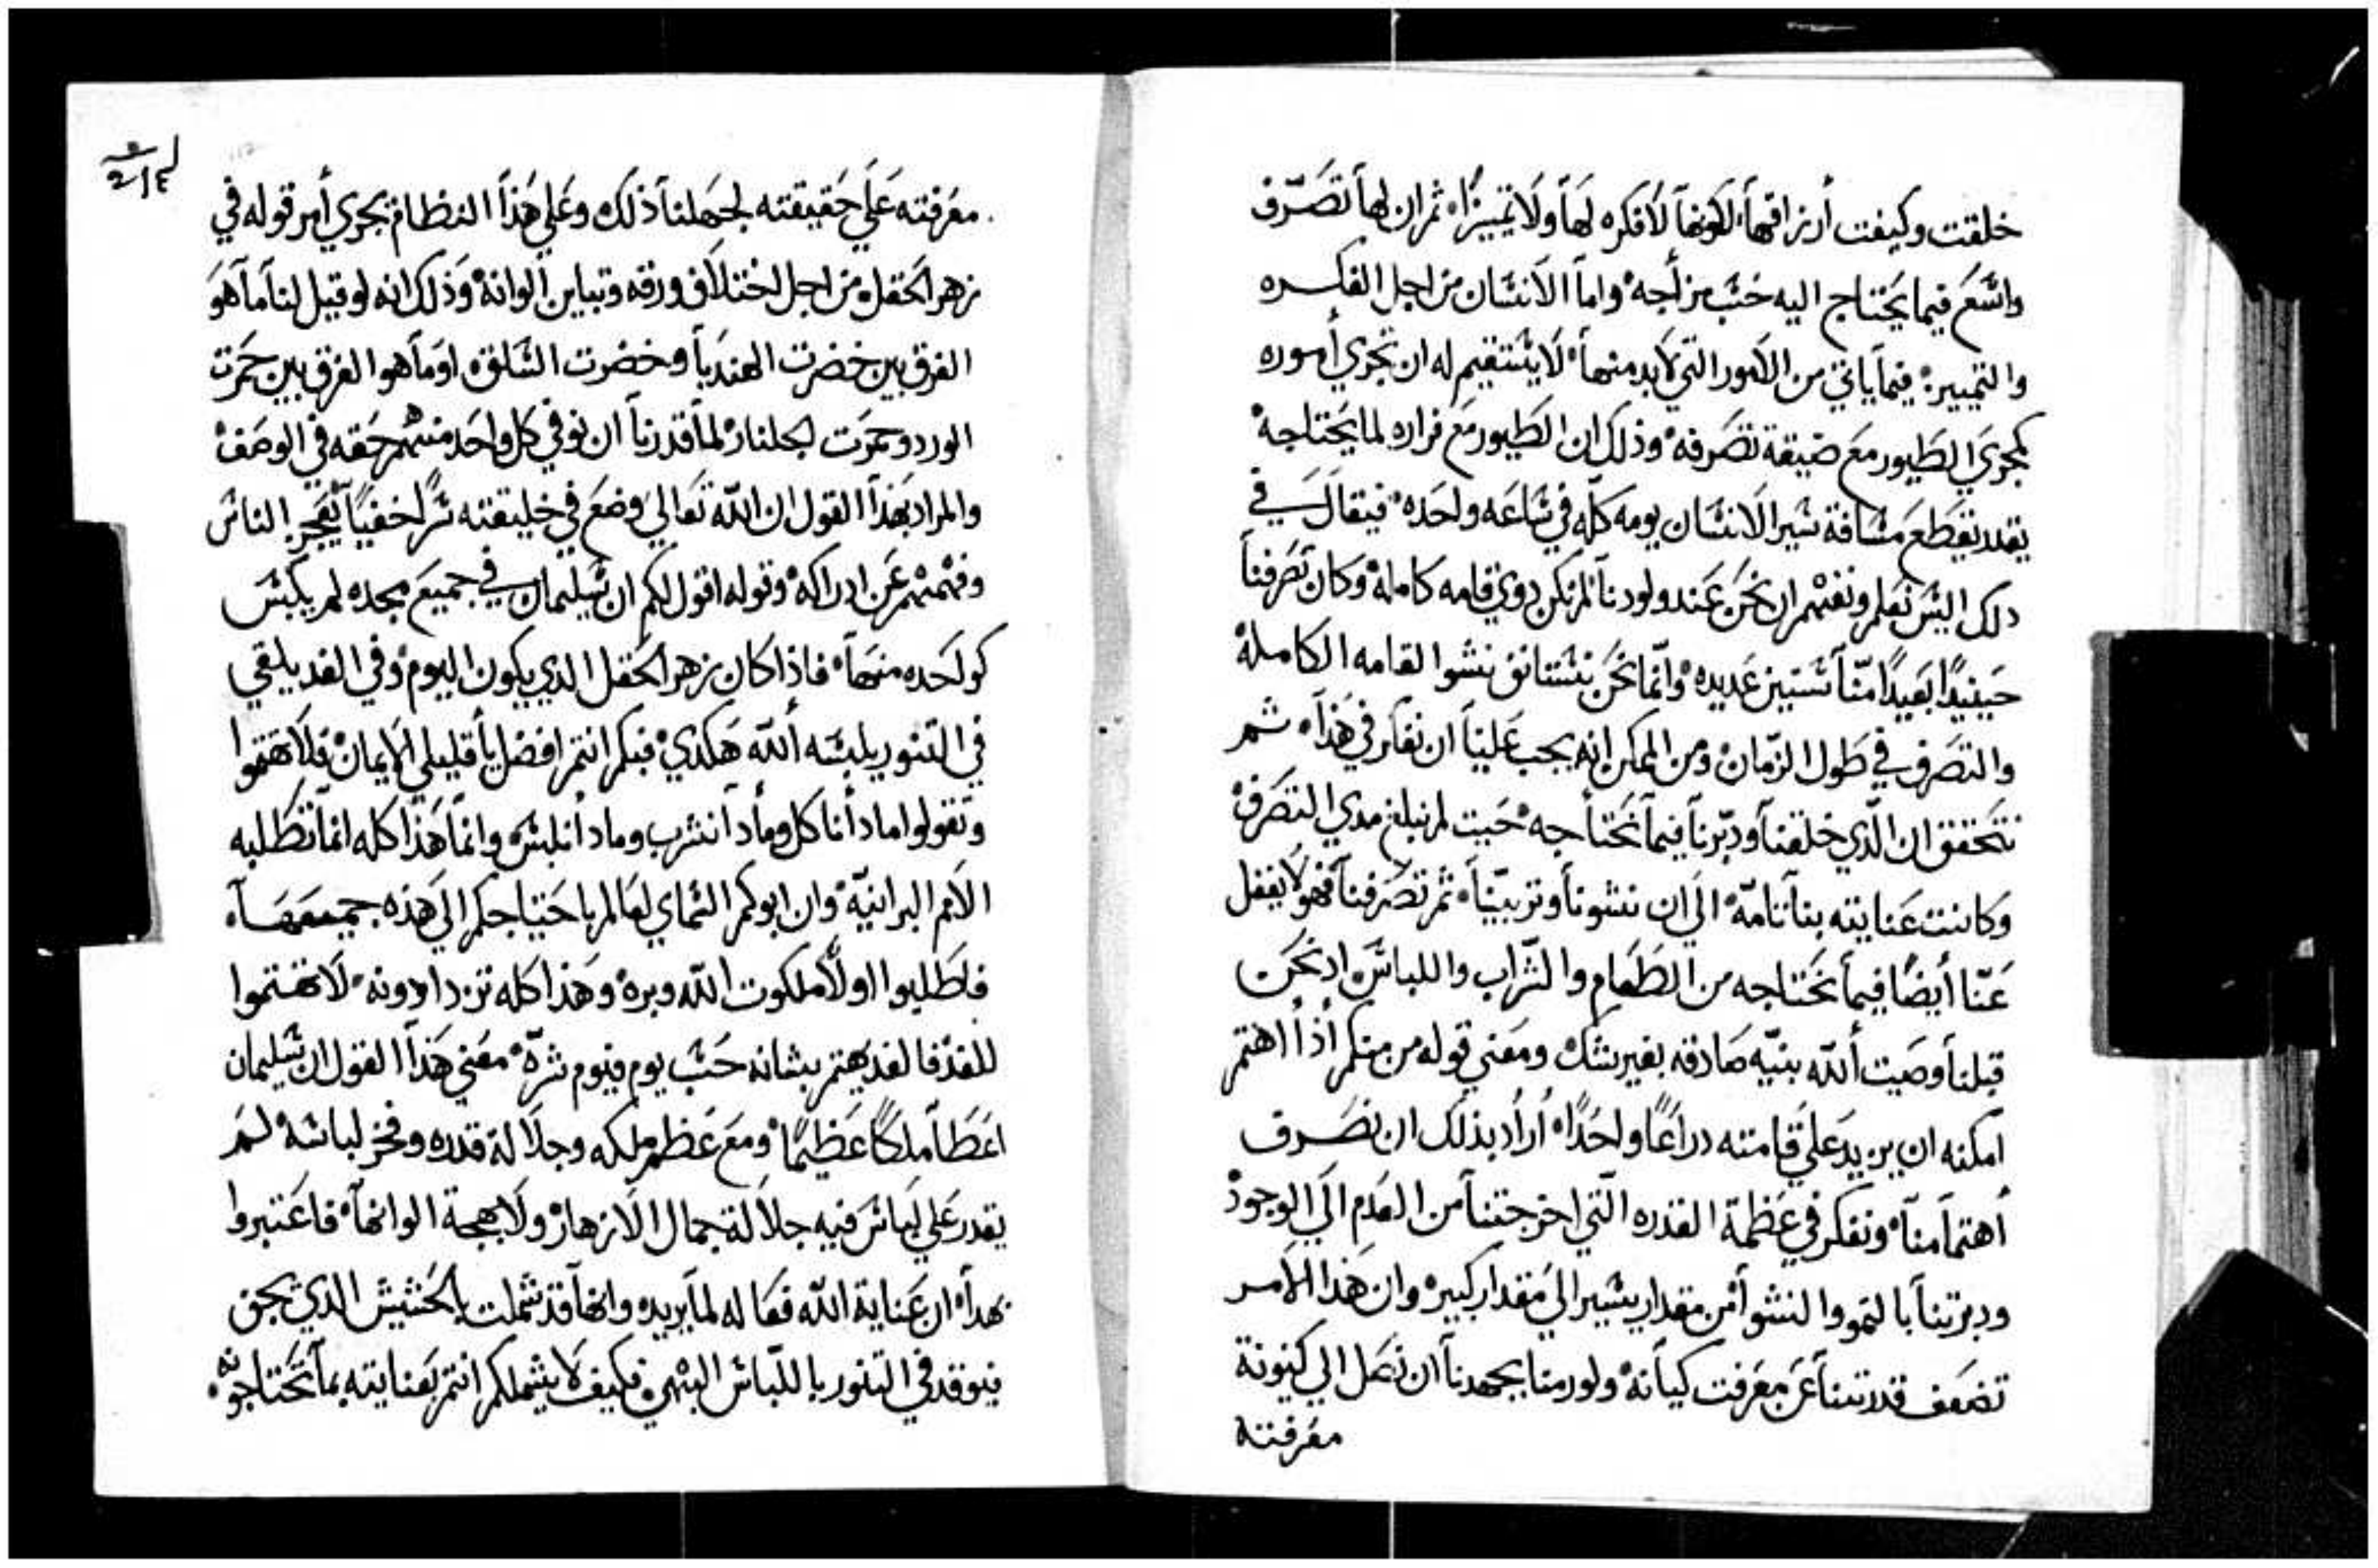 خلقت وكيفت أرزاقهاْ لكونها لا فكره لها ولا تمييزاْ ثم ان لها تصرّف
واسَع فيما يحتاج اليه حسب مزاجهْ واما الانسان من اجل الفكره
والتمييزْ فيما ياتي من الامور التي لابد منهاْ لا يستقيم له ان تجري أموره
كمجري الطيور مع ضيقة تصرفهْ وذلك ان الطيور مع فراره لما يحتاجهْ
يقدر يقطع مسافة سير الانسان يومه كله في ساعه واحدهْ فيقال في
دلك اليس نعلم ونفهم ان نحن عند ولودنا لم نكن دوي قامه كاملهْ وكان تصرفنا
حينيدًا بعيدًا منّا سنين عديدهْ وانّما نحن نستانق ننشوا القامه الكاملهْ
والتصرف في طول الزمانْ ومن الممكن انه يجب علينا ان نفكر في هذاْ ثم
نتحقق ان الّذي خلقنا ودبّرنا فيما نحتاجهْ حيت لم نبلغ مدي التصرفْ
وكانت عنايته بنا تامّهْ الي ان ننشونا وتربيّناْ ثم تصرفنا فهو لا يغفل
عنّا أيضًا فيما نحتاجه من الطعام والشراب واللباسْ اد نحن
قبلنا وصيت أللّه بنيّه صادقه بغير شكْ ومعني قوله من منكم أذا اهتم
امكنه ان يزيد علي قامته دراعًا واحدًاْ أراد بذلك ان نصرف
أهتمامناْ ونفكر في عظمة القدره الّتي اخرجتنا من العدم الي الوجودْ
ودبرتنا بالنمو والنشوا من مقدار يسير الي مقدار كبيرْ وان هذا الامر
تضعف قدرتنا عن معرفت كيانهْ ولو رمنا بجهدنا ان نصل الي كينونة
معرفته
معرفته علي حقيقته لجهلنا ذلك وعلي هذا النظام يجري أمر قوله في
زهر الحقلْ من اجل اختلاف ورقه وتباين الوانهْ وذلك انه لو قيل لنا ما هو
الفرق بين خضرت الهندبا وخضرت السلقْ او ما هو الفرق بين حمرت
الورد وحمرت الجلنارْ لما قدرنا ان نوفي كل واحد منهم حقه في الوصفْ
والمراد بهذا القول ان اللّه تعالي وضع في خليقته سرًا خفيًا يعجز الناس
وفهمهم عن ادراكهْ وقوله اقول لكم ان سليمان في جميع مجده لم يلبس
كواحده منهاْ فاذا كان زهر الحقل الدي يكون اليومْ وفي الغد يلقي
في التنور يلبسه أللّه هكديْ فبكم انتم افضل يا قليلي الايمانْ فلا تهتموا
وتقولوا مادا ناكل ومادا نشرب ومادا نلبسْ وانما هذا كله انما تطلبه
الامم البرانيّهْ وان ابوكم السماي لعالم باحتياجكم الي هذه جميعهاْ
فاطلبوا اولاً ملكوت اللّه وبرهْ وهذا كله تزدادونهْ لا تهتموا
للغدْ فالغد يهتم بشانه حسب يوم فيوم شرّهْ معني هذا القول ان سليمان
اعطا ملكًا عظيمًاْ ومع عظم ملكه وجلالة قدره وفخر لباسهْ لم
يقدر علي لباس فيه جلالة جمال الازهارْ ولا بهجة الوانهاْ فاعتبروا
بهداْ ان عناية اللّه فعاله لما يريده وانها قد شملت بالحشيش الدي يجق
فيوقد في التنور باللّباس البهيْ فكيف لا يشملكم انتم بعنايته بما تحتاجونهْ